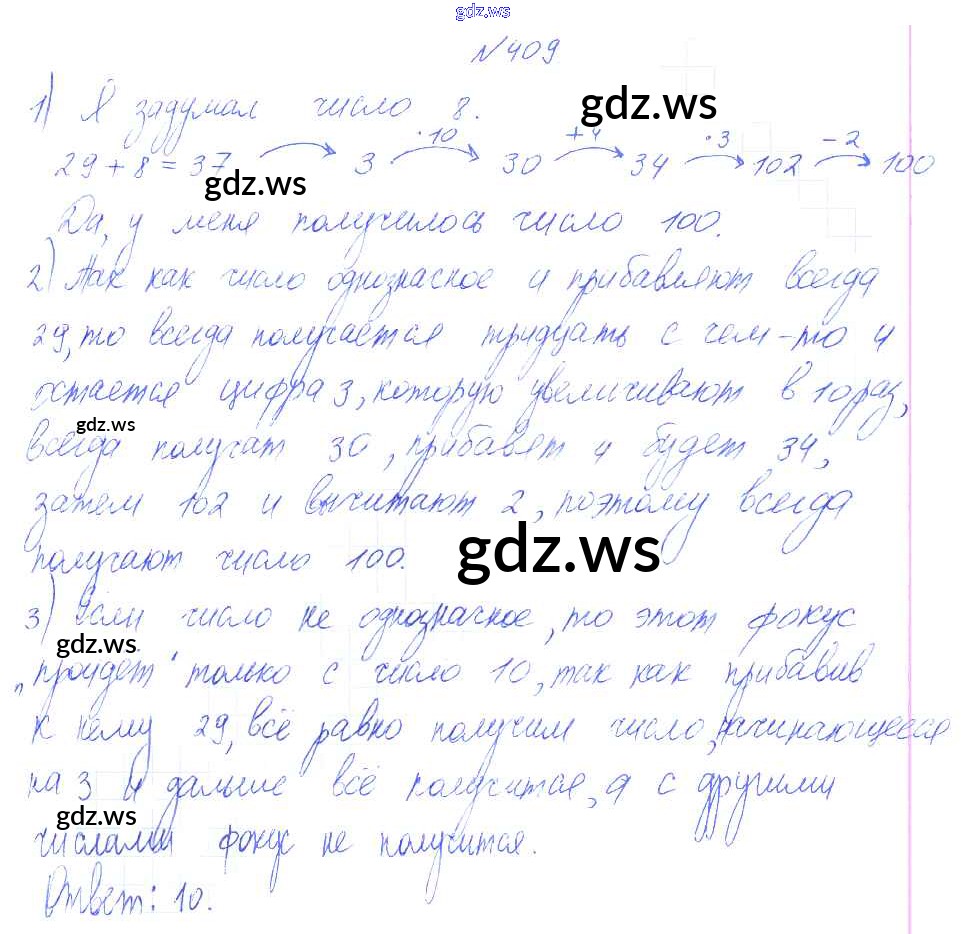 gdz.ws
№ 409
1) Я задумал число 8.
gdz.ws
29 + 8 = 37 → 3 ·10 → 30 +4 → 34 ·3 → 102 −2 → 100
gdz.ws
Да, у меня получилось число 100.
2) Так как число однозначное и прибавляют всегда
29, то всегда получается тридцать с чем-то и
остается цифра 3, которую увеличивают в 10 раз,
gdz.ws
всегда получат 30, прибавят 4 будет 34,
затем 102 и вычитают 2, поэтому всегда
gdz.ws
получают число 100.
3) Если число не однозначное, то этот фокус
gdz.ws
„пройдет“ только с число 10, так как прибавив
к нему 29, всё равно получим число, начинающееся
на 3 и дальше всё получится, а с другими
gdz.ws
числами фокус не получится.
Ответ: 10.